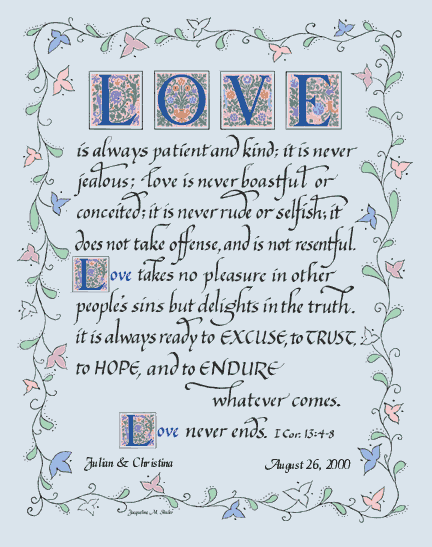 LOVE
is always patient and kind; it is never
jealous; love is never boastful or
conceited; it is never rude or selfish; it
does not take offense, and is not resentful.
Love takes no pleasure in other
people's sins but delights in the truth.
it is always ready to EXCUSE, to TRUST,
to HOPE, and to ENDURE
whatever comes.
Love never ends. I Cor. 13:4-8
Julian & Christina August 26, 2000
Jacqueline M.